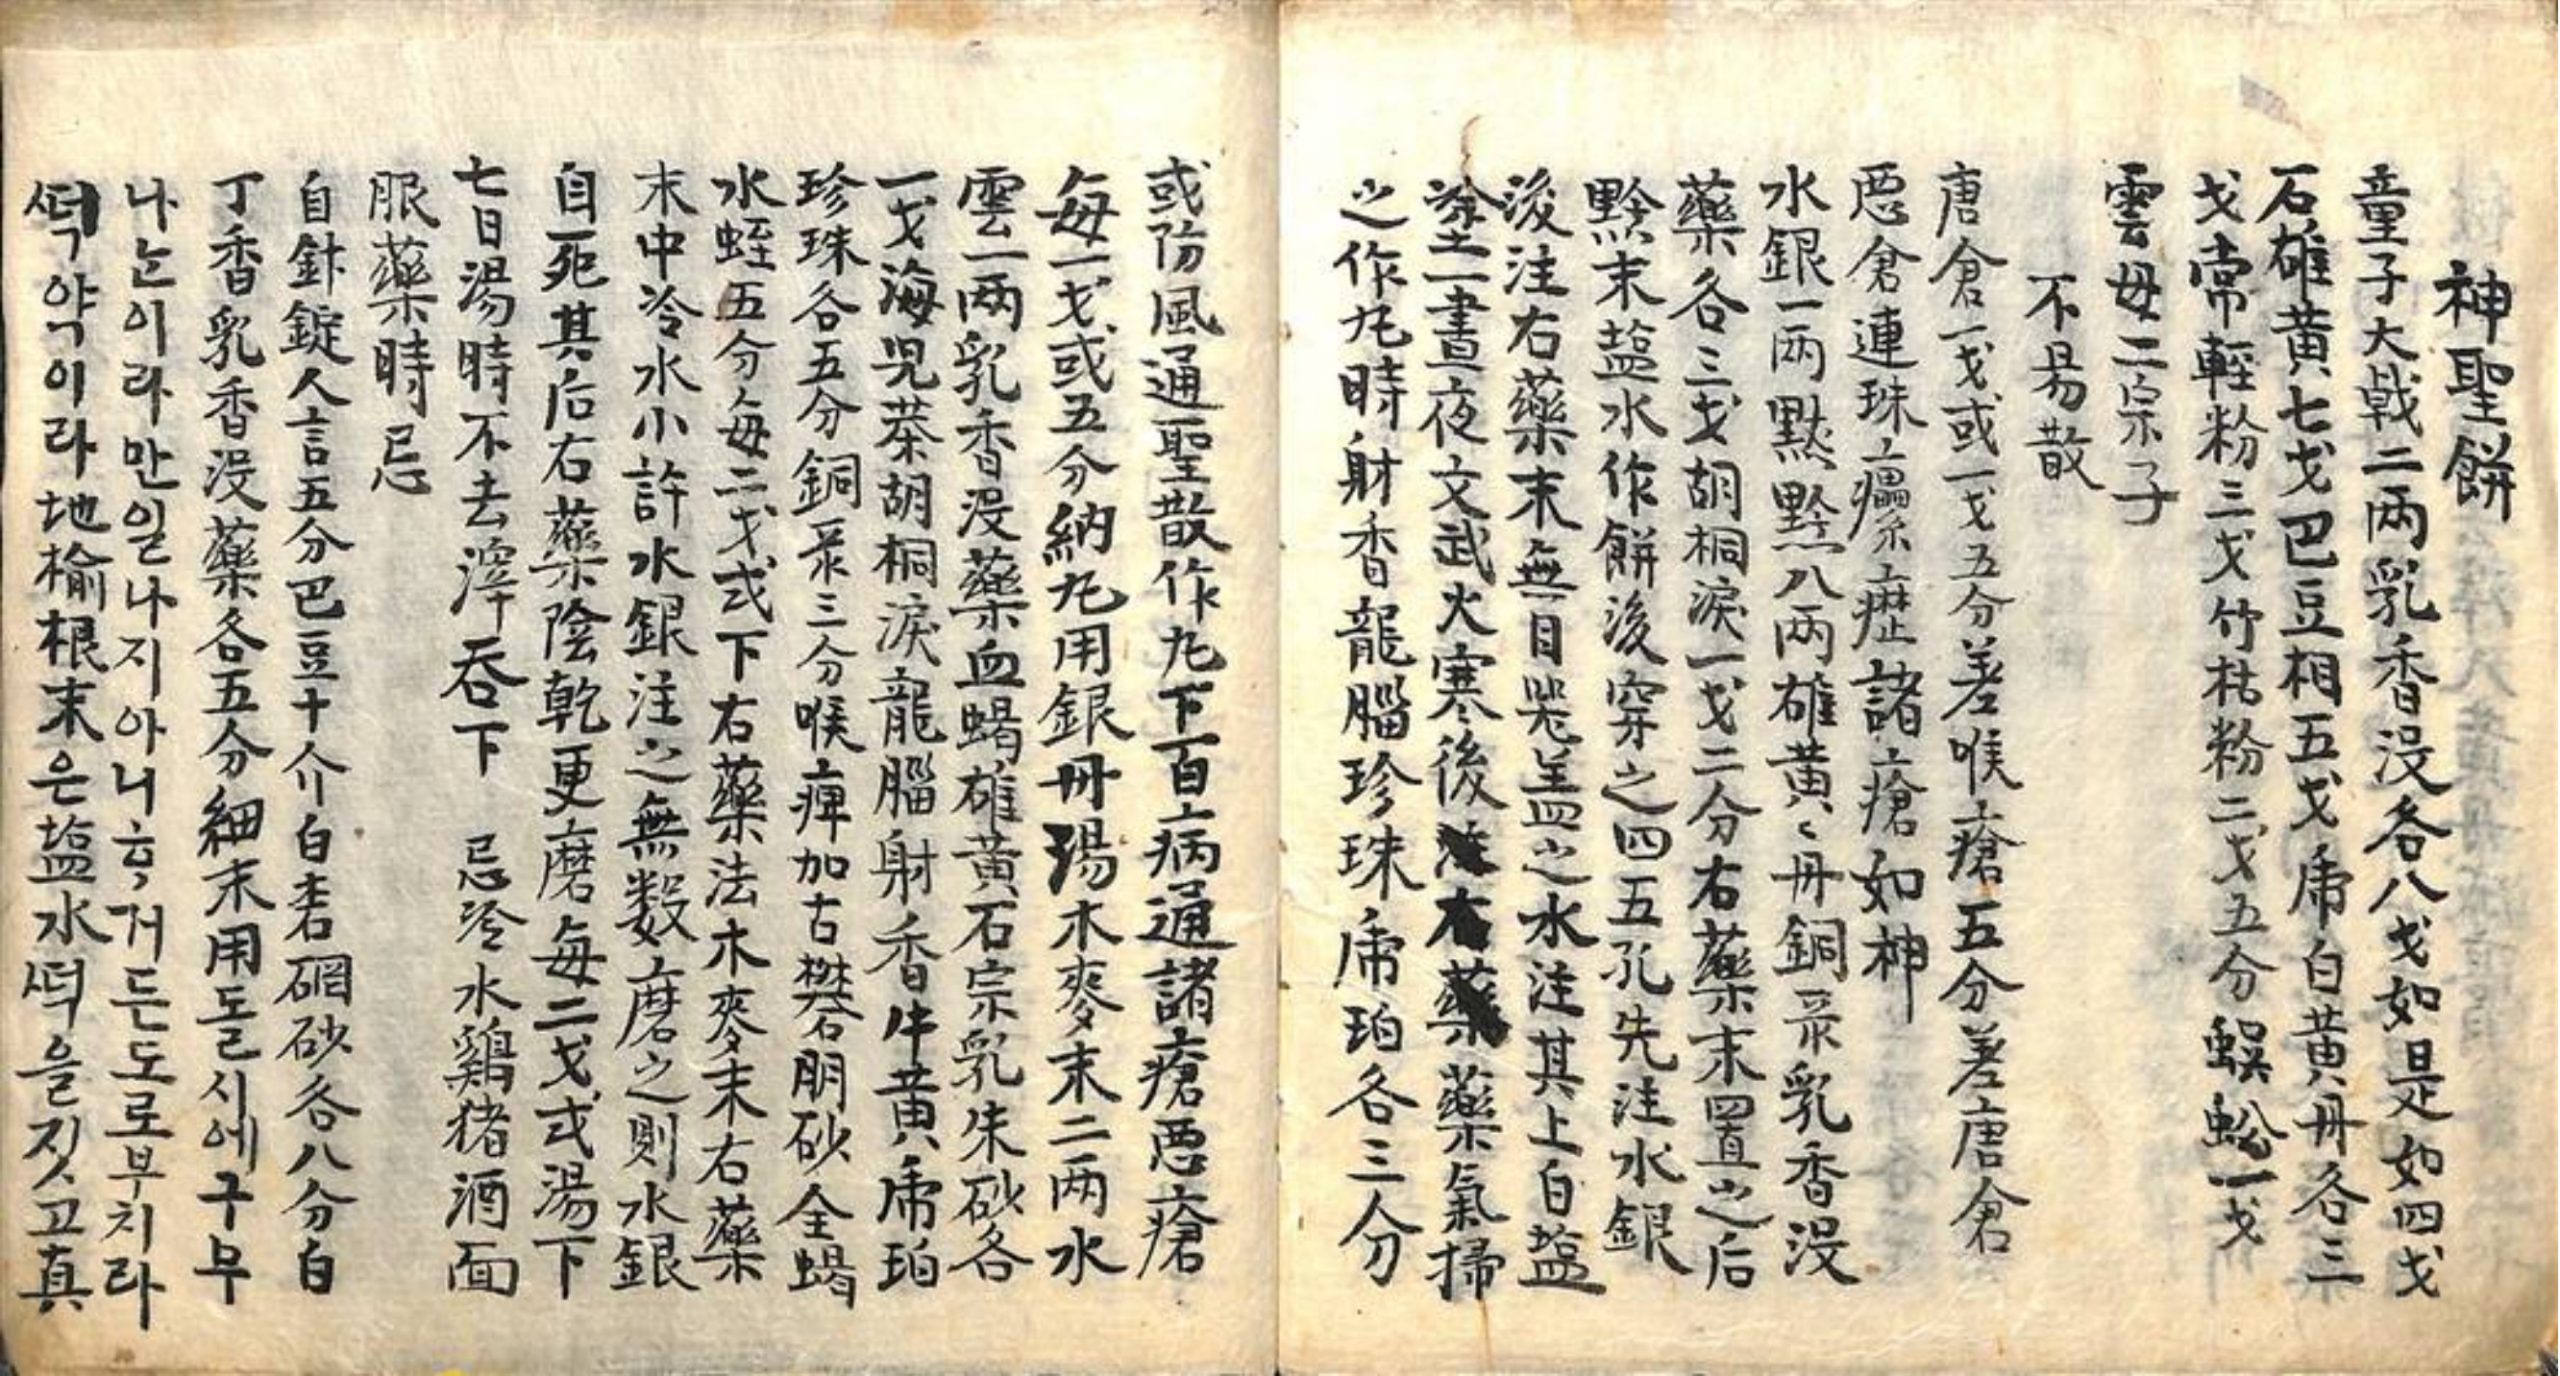 神聖餅
童子大戟二兩乳香没各八戈如是如四戈
石雄黄七戈巴豆相五戈乕白黄丹各三
戈常輕粉三戈竹枯粉二戈五分蜈蚣一戈
雲母二宗子
不易散
唐倉一戈或一戈五分差喉瘡五分差唐倉
惡倉連珠癗瘰癧諸瘡如神
水銀一兩黙黔八兩雄黄丹銅彔乳香没
藥各三戈胡桐淚一戈二分右藥末置之后
黔末塩水作餅後穿之四五孔先注水銀
後注右藥末無目盖之水注其上白塩
塗一晝夜文武火寒後藥氣掃
之作丸時射香龍腦珍珠乕珀各三分
或防風通聖散作丸下百病通諸瘡惡瘡
每一戈或五分納丸用銀丹湯木麥末二兩水
雲一兩乳香没藥血蝎雄黄石宗乳朱砂各
一戈海児茶胡桐淚龍腦射香牛黄乕珀
珍珠各五分銅彔三分喉痺加古礬朋砂全蝎
水蛭五分每二戈或下右藥法木麥末右藥
末中冷水小許水銀注之無数磨之則水銀
自死其后右藥陰乾更磨每二戈或湯下
七日湯時不去滓吞下 忌冷水鷄猪酒面
服藥時忌
自針錠人言五分巴豆十介白砂各八分白
丁香乳香没藥各五分細末用돌시에구무
나는이라만일나지아니ᄒᆞ거든도로부치라
ᄯᅥᆨ약이라地榆根末은塩水ᄯᅥᆨ을짓고真